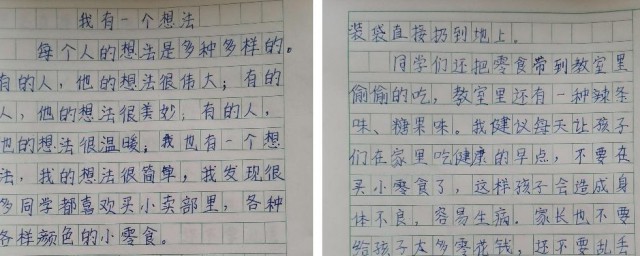 我有一个想法
每个人的想法是多种多样的。
有的人，他的想法很伟大；有的
人，他的想法很美妙；有的人，
他的想法很温暖；我也有一个想
法，我的想法很简单，我发现很
多同学都喜欢买小卖部里，各种
各样颜色的小零食。
装袋直接扔到地上。
同学们还把零食带到教室里
偷偷的吃，教室里还有一种辣条
味、糖果味。我建议每天让孩子
们在家里吃健康的早点，不要在
买小零食了，这样孩子会造成身
体不良，容易生病。家长也不要
给孩子太多零花钱，还不要乱丢